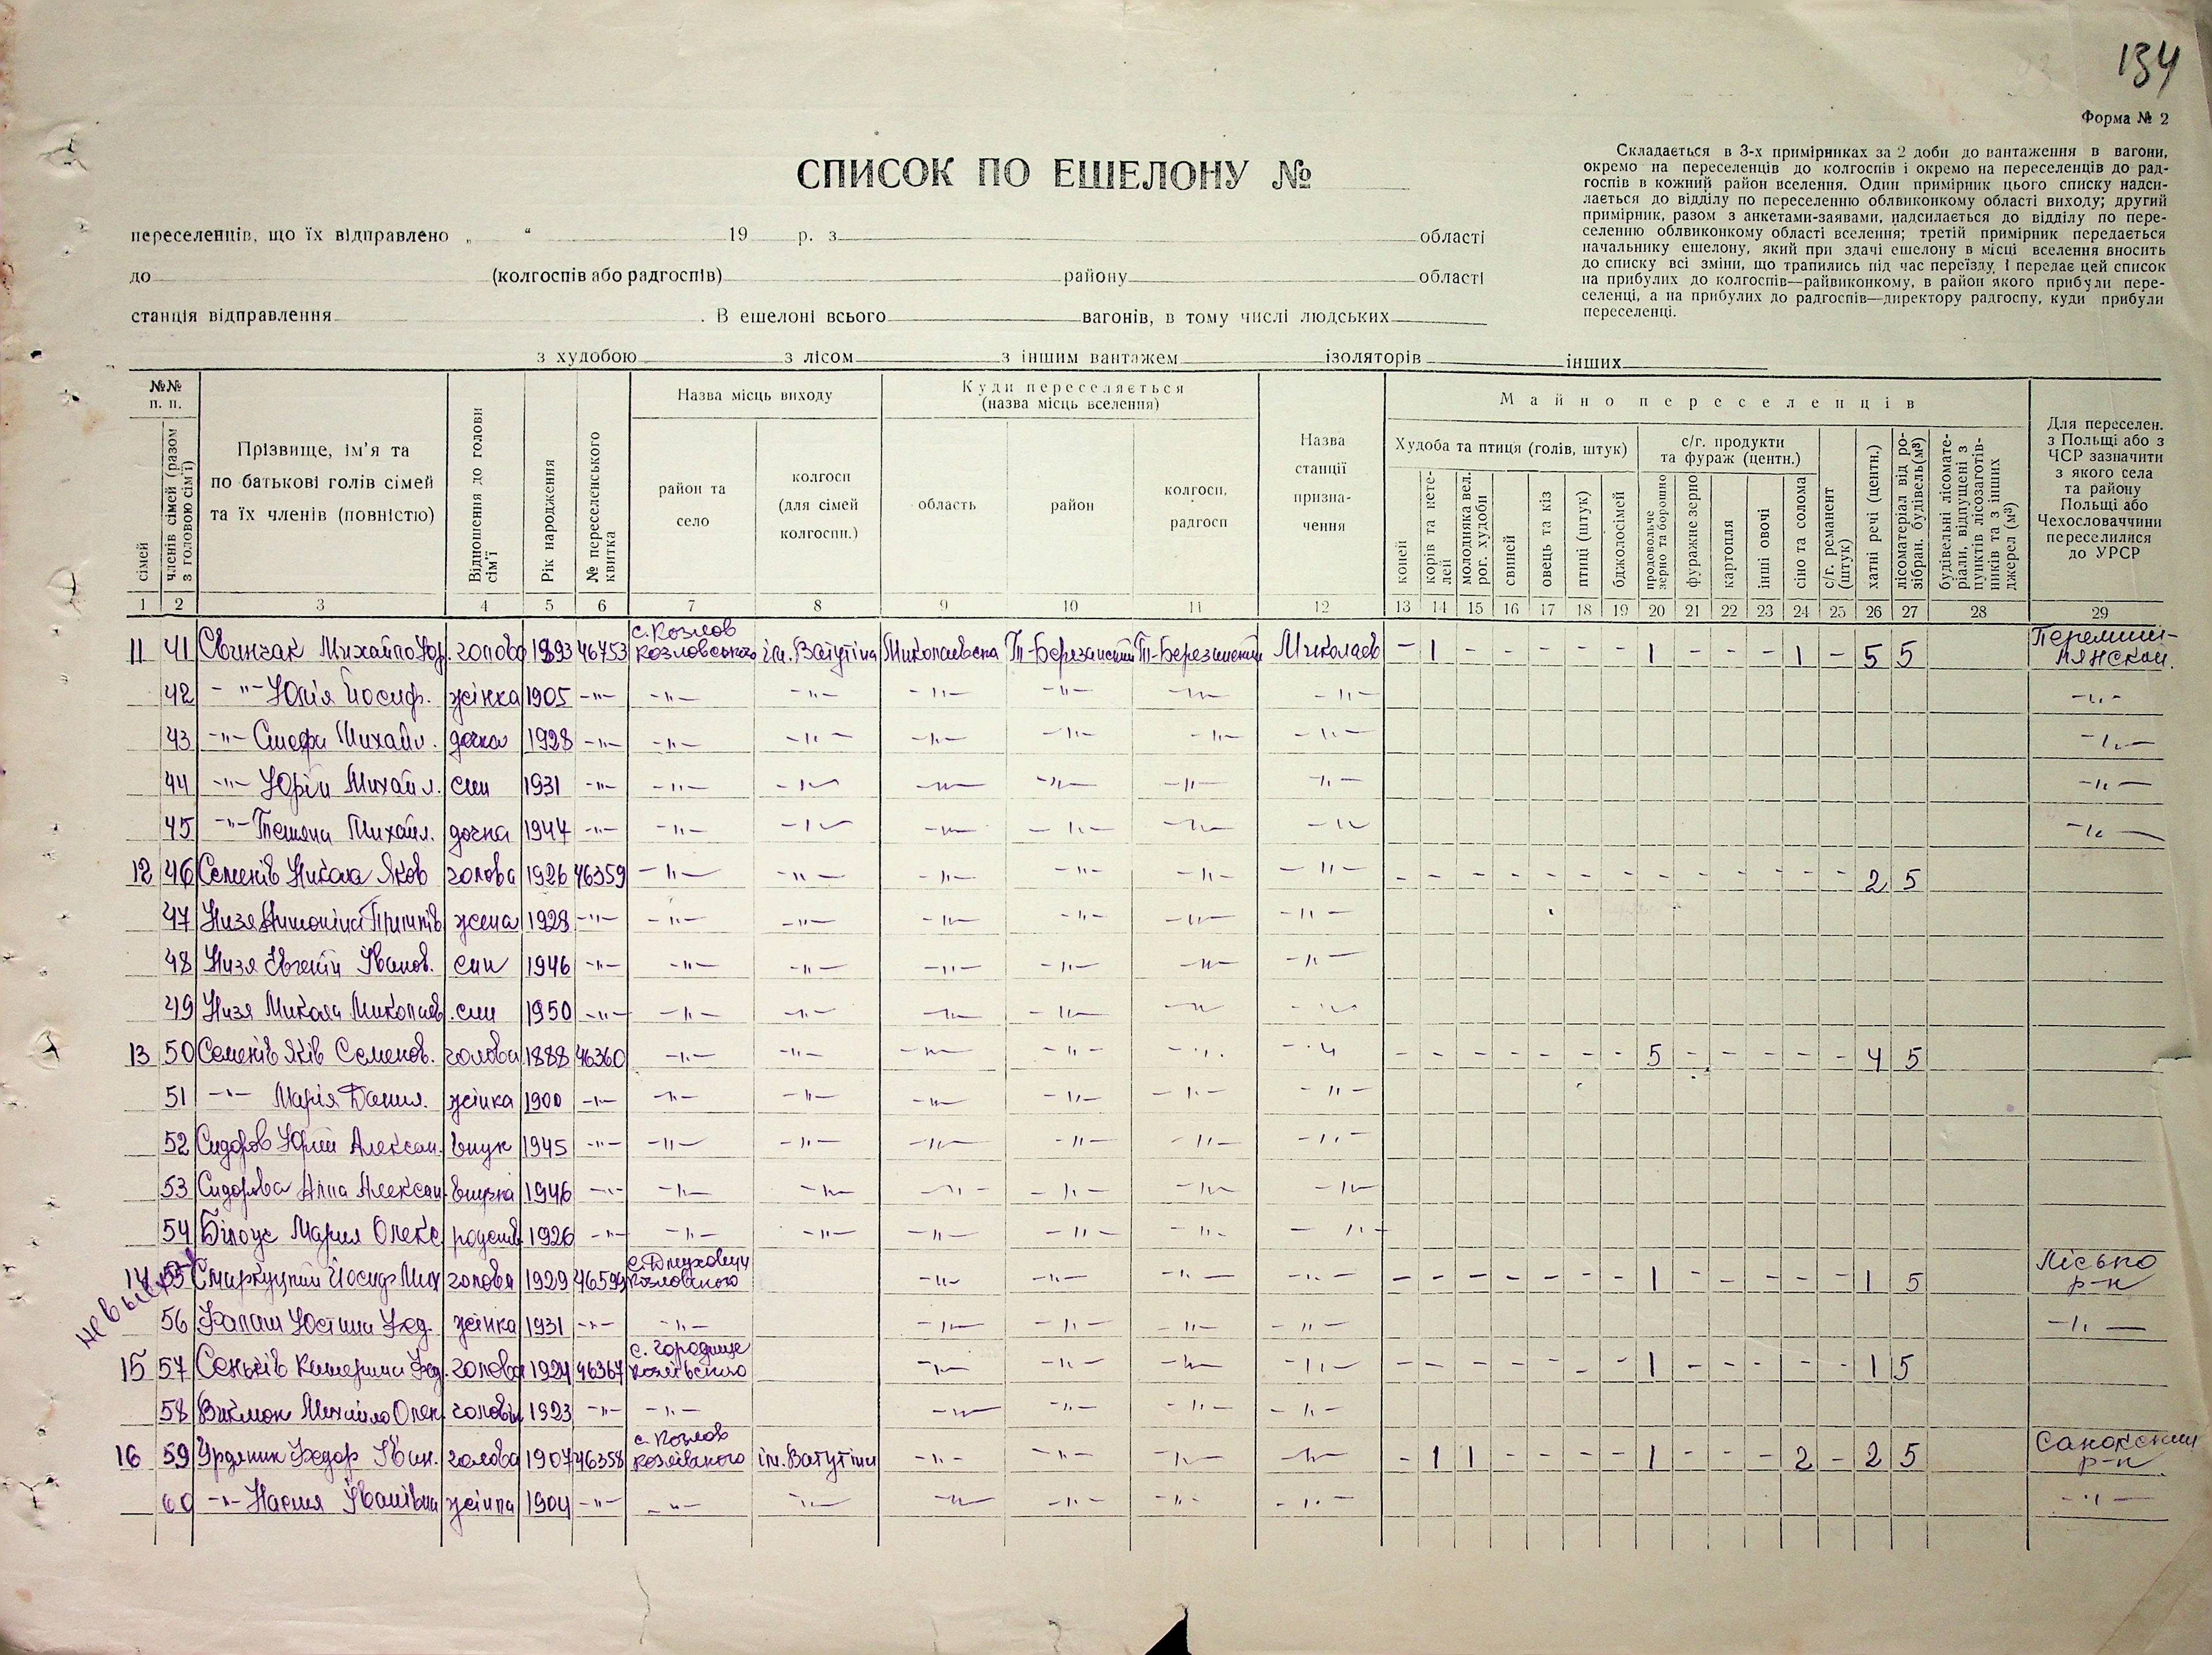 134
Форма № 2
СПИСОК ПО ЕШЕЛОНУ №
Складається в 3-х примірниках за 2 доби до вантаження в вагони,
окремо на переселенців до колгоспів і окремо на переселенців до рад-
госпів в кожний район вселення. Один примірник цього списку надси-
лається до відділу по переселенню облвиконкому області виходу; другий
примірник, разом з анкетами-заявами, надсилається до відділу по пере-
селенню облвиконкому області вселення; третій примірник передається
начальнику ешелону, який при здачі ешелону в місці вселення вносить
до списку всі зміни, що трапились під час переїзду, і передає цей список
на прибулих до колгоспів—райвиконкому, в район якого прибули пере-
селенці, а на прибулих до радгоспів—директору радгоспу, куди прибули
переселенці.
переселенців, що їх відправлено „ “ 19 р. з області
до (колгоспів або радгоспів) району області
станція відправлення . В ешелоні всього вагонів, в тому числі людських
з худобою з лісом з іншим вантажем ізоляторів інших
№№ п. п.
сімей
членів сімей (разом з головою сім'ї)
Прізвище, ім'я та
по батькові голів сімей
та їх членів (повністю)
Відношення до голови сім'ї
Рік народження
№ переселенського квитка
Назва місць виходу
район та село
колгосп (для сімей колгоспн.)
Куди переселяється
(назва місць вселення)
область
район
колгосп, радгосп
Назва станції призна-чення
Майно переселенців
Худоба та птиця (голів, штук)
коней
корів та нете-лей
молодняка вел. рог. худоби
свиней
овець та кіз
птиці (штук)
бджолосімей
с/г. продукти та фураж (центн.)
продовольче зерно та борошно
фуражне зерно
картопля
інші овочі
сіно та солома
с/г. реманент (штук)
хатні речі (центн.)
лісоматеріал від ро-зібран. будівель (м³)
будівельні лісомате-ріали, відпущені з пунктів лісозаготів-ників та з інших джерел (м³)
Для переселен. з Польщі або з ЧСР зазначити з якого села та району Польщі або Чехословаччини переселилися до УРСР
1 2 3 4 5 6 7 8 9 10 11 12 13 14 15 16 17 18 19 20 21 22 23 24 25 26 27 28 29
11 41 Свинчак Михайло Юр. голова 1893 46753 с. Козлов Козловського ім. Ватутіна Миколаевска Т-Березанский Т-Березанский Миколаев - 1 - - - - - 1 - - - 1 - 5 5
42 -"- Юлія Йосиф. жінка 1905 -"- -"- -"- -"- -"- -"- -"- -"-
43 -"- Стефа Михайл. дочка 1928 -"- -"- -"- -"- -"- -"- -"- -"-
44 -"- Юрій Михайл. син 1931 -"- -"- -"- -"- -"- -"- -"- -"-
45 -"- Тетяна Михайл. дочка 1944 -"- -"- -"- -"- -"- -"- -"- -"-
12 46 Семенів Микола Яков голова 1926 46359 -"- -"- -"- -"- -"- -"- - - - - - - - - - - - - - 2 5
47 Низя жена 1928 -"- -"- -"- -"- -"- -"- -"-
48 Низя Євгеній Іванов. син 1946 -"- -"- -"- -"- -"- -"- -"-
49 Низя Микола Миколаєв. син 1950 -"- -"- -"- -"- -"- -"- -"-
13 50 Семенів Яків Семенов. голова 1888 46360 -"- -"- -"- -"- -"- -"- - - - - - - - 5 - - - - - 4 5
51 -"- Марія Данил. жінка 1900 -"- -"- -"- -"- -"- -"- -"-
52 Сидоров Юрій Алексан. внук 1945 -"- -"- -"- -"- -"- -"- -"-
53 Сидорова Алла Алексан. внучка 1946 -"- -"- -"- -"- -"- -"- -"-
54 Білоус Мария Олекс 1926 -"- -"- -"- -"- -"- -"- -"-
14 55 Йосиф Мих голова 1929 46599 Козловского -"- -"- -"- -"- - - - - - - - 1 - - - - - 1 5 Лісько р-н
56 Юстина Фед. жінка 1931 -"- -"- -"- -"- -"- -"- -"-
15 57 Сеньків Катерина Фед. голова 1924 46367 с. Городище -"- -"- -"- -"- - - - - - - - 1 - - - - - 1 5
58 Михайло Олек 1923 -"- -"- -"- -"- -"- -"-
16 59 Федор Іван. голова 1907 46358 с. Козлов ім. Ватутіна -"- -"- -"- -"- - 1 1 - - - - 1 - - - 2 - 2 5 Санокский р-н
60 -"- Настя Іванівна жінка 1904 -"- -"- -"- -"- -"- -"- -"- -"-